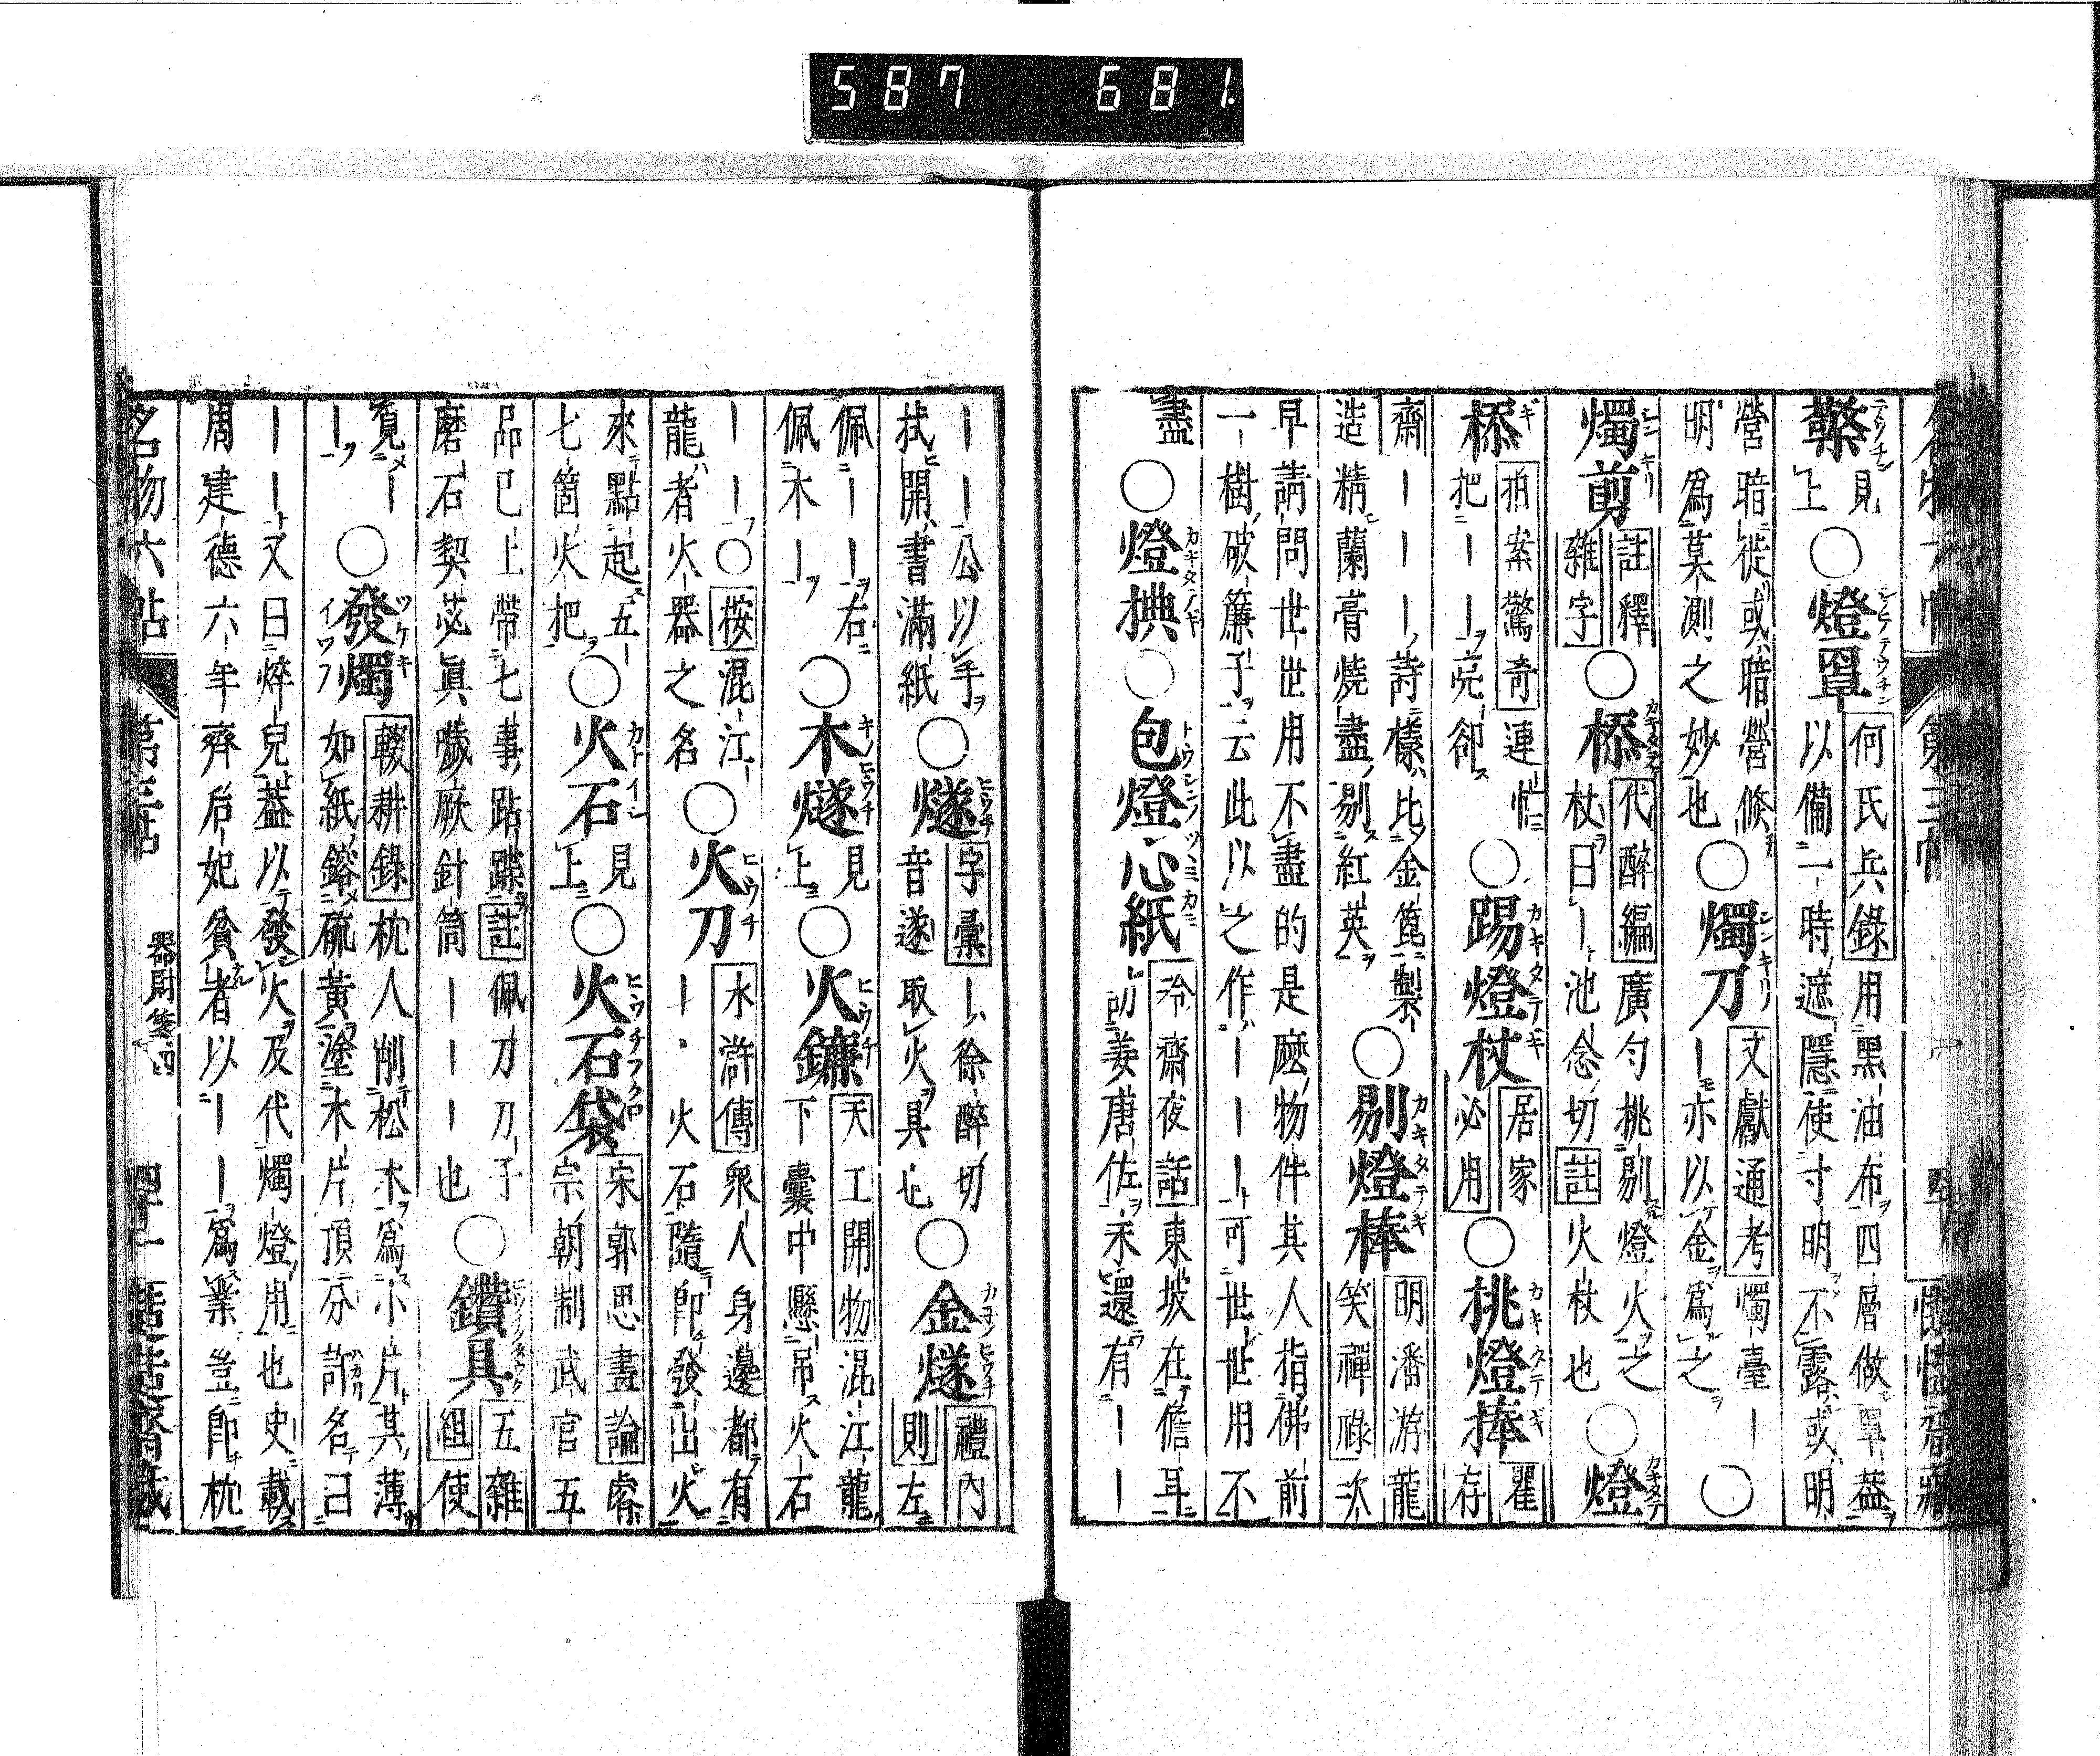 587 681.
檠 見上 ○燈罩 何氏兵錄 用黑油布四層做單葢
以備二時遮隱使寸明不露或明
營暗徙或暗營倐
明為莫測之妙也 ○燭刀 文獻通考 燭臺ー
ー亦以金為之 ○
燭剪 註釋雜字 ○㮇 代醉編 廣勺挑剔燈火之
杖曰ー池念切 註 火杖也 ○燈
㮇 拍案驚奇 連忙
把ーー亮卻 ○踢燈杖 居家必用 ○桃燈捧 瞿存
齋ーーーー詩樣比金篦製
造精蘭膏燒盡剔紅英 ○剔燈棒 明潘游龍 笑禪祿 次
早請問世世用不盡的是麽物件其人指佛前
一樹破簾子云此以之作ーーー可世世用不
盡 ○燈㮇 ○包燈心紙 冷齋夜話 東坡在儋耳
ーー訪姜唐佐不還有ー
ーー公以手
拭開書滿紙 ○燧 字彙 ー徐醉切
音遂取火具也 ○金燧 禮內則 左
佩ーー右
佩木ー ○木燧 見上 ○火鐮 天工開物 混江龍
下囊中懸吊火石
ーー○按混江
龍者火器之名 ○火刀 水滸傳 衆人身邊都有
ー・火石隨即發出火
來點起五
七箇火把 ○火石 見上 ○火石袋 宋郭思畫論
宗朝制武官五
品已上帶七事跕蹀 註 佩刀刀子
磨石契苾真噦厥針筒ーーー也 ○鑽具 五雜組 使
覓ー
ー ○發燭 輟耕錄 杭人削松木為小片其薄
如紙鎔硫黃塗木片頂分許名曰
ーー又曰焠兒葢以發火及代燭燈用也史載
周建德六年齊后妃貧者以ーー為業豈即杭
名物六帖 第三帖 器財箋四 四十一